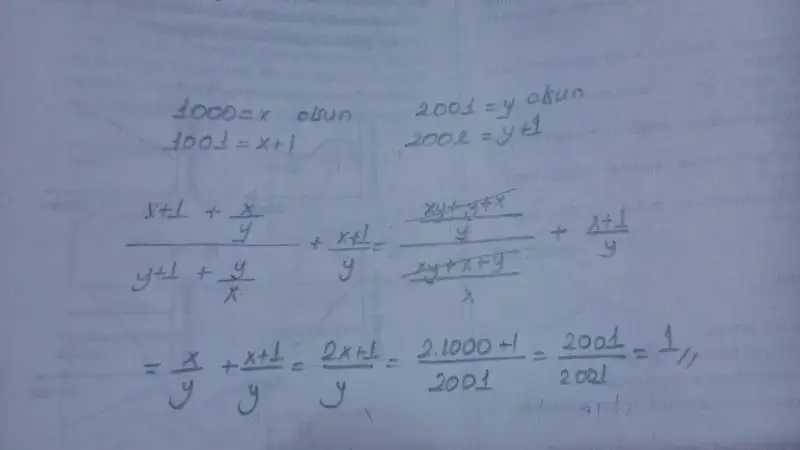 1000=x olsun 2001=y olsun
1001=x+1 2002=y+1
x+1 + x/y / y+1 + y/x + x+1/y = xy+y+x/y / xy+x+y/x + x+1/y
= x/y + x+1/y = 2x+1/y = 2.1000+1/2001 = 2001/2001 = 1,,